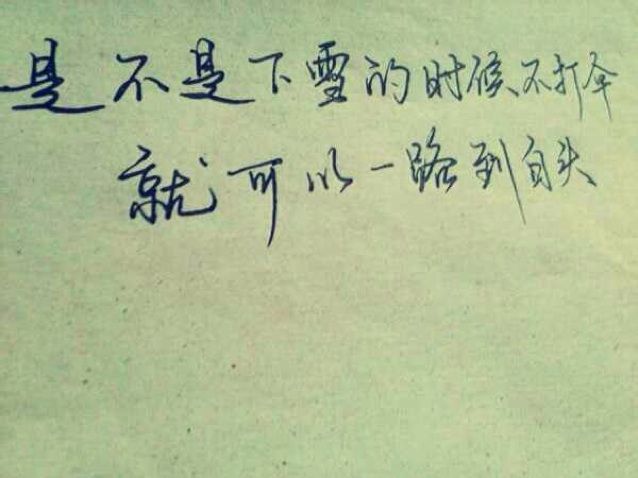 是不是下雪的时候不打伞
就可以一路到白头